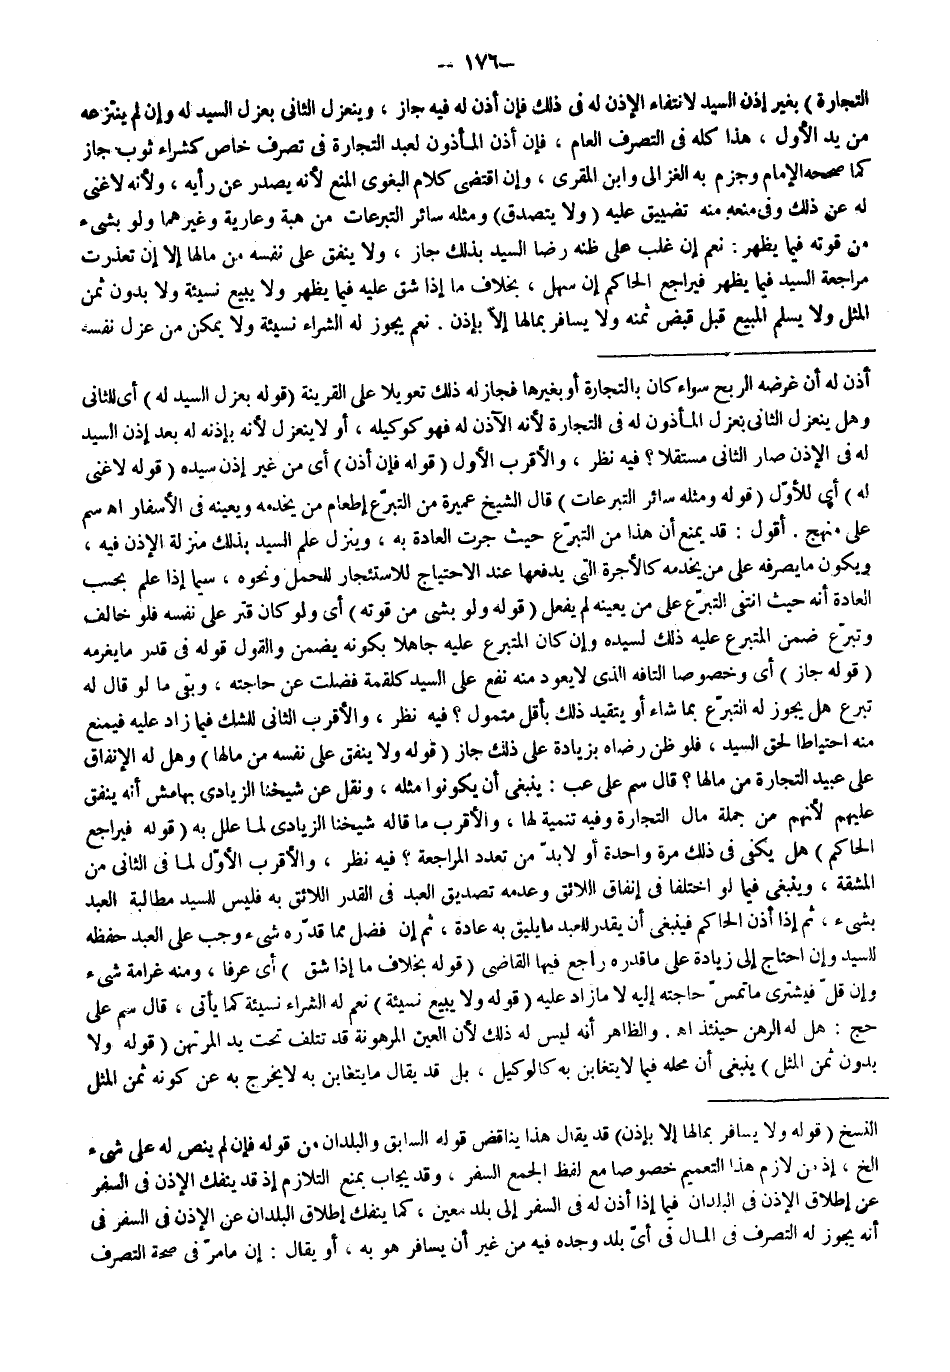 – ١٧٦ –
التجارة ) بغير إذن السيد لانتفاء الإذن له فى ذلك فإن أذن له فيه جاز ، وينعزل الثانى بعزل السيد له وإن لم ينتزعه
من يد الأول ، هذا كله فى التصرف العام ، فإن أذن المأذون لعبد التجارة فى تصرف خاص كشراء ثوب جاز
كما صححه الإمام وجزم به الغزالى وابن المقرى ، وإن اقتضى كلام البغوى المنع لأنه يصدر عن رأيه ، ولأنه لاغنى
له عن ذلك وفى منعه منه تضييق عليه ( ولا يتصدق) ومثله سائر التبرعات من هبة وعارية وغيرهما ولو بشىء
من قوته فيما يظهر : نعم إن غلب على ظنه رضا السيد بذلك جاز ، ولا ينفق على نفسه من مالها إلا إن تعذرت
مراجعة السيد فيما يظهر فيراجع الحاكم إن سهل ، بخلاف ما إذا شق عليه فيما يظهر ولا يبيع نسيئة ولا بدون ثمن
المثل ولا يسلم المبيع قبل قبض ثمنه ولا يسافر بمالها إلاّ بإذن . نعم يجوز له الشراء نسيئة ولا يمكن من عزل نفسه
أذن له أن غرضه الربح سواء كان بالتجارة أو بغيرها فجاز له ذلك تعويلا على القرينة (قوله بعزل السيد له ) أى للثانى
وهل ينعزل الثانى بعزل المأذون له فى التجارة لأنه الآذن له فهو كوكيله ، أو لاينعزل لأنه بإذنه له بعد إذن السيد
له فى الإذن صار الثانى مستقلا ؟ فيه نظر ، والأقرب الأول ( قوله فإن أذن ) أى من غير إذن سيده ( قوله لاغنى
له ) أى للأوّل ( قوله ومثله سائر التبرعات ) قال الشيخ عميرة من التبرّع إطعام من يخدمه ويعينه فى الأسفار اه سم
على منهج . أقول : قد يمنع أن هذا من التبرّع حيث جرت العادة به ، وينزل علم السيد بذلك منزلة الإذن فيه ،
ويكون مايصرفه على من يخدمه كالأجرة التى يدفعها عند الاحتياج للاستئجار للحمل ونحوه ، سيما إذا علم بحسب
العادة أنه حيث انتفى التبرّع على من يعينه لم يفعل ( قوله ولو بشىء من قوته ) أى ولو كان قتر على نفسه فلو خالف
وتبرّع ضمن المتبرع عليه ذلك لسيده وإن كان المتبرع عليه جاهلا بكونه يضمن والقول قوله فى قدر مايغرمه
( قوله جاز ) أى وخصوصا التافه الذى لايعود منه نفع على السيد كلقمة فضلت عن حاجته ، وبقى ما لو قال له
تبرع هل يجوز له التبرّع بما شاء أو يتقيد ذلك بأقل متمول ؟ فيه نظر ، والأقرب الثانى للشك فيما زاد عليه فيمنع
منه احتياطا لحق السيد ، فلو ظن رضاه بزيادة على ذلك جاز ( قوله ولا ينفق على نفسه من مالها ) وهل له الإنفاق
على عبيد التجارة من مالها ؟ قال سم على عب : ينبغى أن يكونوا مثله ، ونقل عن شيخنا الزيادى بهامش أنه ينفق
عليهم لأنهم من جملة مال التجارة وفيه تنمية لها ، والأقرب ما قاله شيخنا الزيادى لما علل به ( قوله فيراجع
الحاكم ) هل يكفى فى ذلك مرة واحدة أو لابدّ من تعدد المراجعة ؟ فيه نظر ، والأقرب الأوّل لما فى الثانى من
المشقة ، وينبغى فيما لو اختلفا فى إنفاق اللائق وعدمه تصديق العبد فى القدر اللائق به فليس للسيد مطالبة العبد
بشىء ، ثم إذا أذن الحاكم فينبغى أن يقدر للعبد مايليق به عادة ، ثم إن فضل مما قدّره شىء وجب على العبد حفظه
للسيد وإن احتاج إلى زيادة على ماقدره راجع فيها القاضى ( قوله بخلاف ما إذا شق ) أى عرفا ، ومنه غرامة شىء
وإن قلّ فيشترى ماتمسّ حاجته إليه لا مازاد عليه ( قوله ولا يبيع نسيئة ) نعم له الشراء نسيئة كما يأتى ، قال سم على
حج : هل له الرهن حينئذ اه . والظاهر أنه ليس له ذلك لأن العين المرهونة قد تتلف تحت يد المرتهن ( قوله ولا
بدون ثمن المثل ) ينبغى أن محله فيما لايتغابن به كالوكيل ، بل قد يقال مايتغابن به لايخرج به عن كونه ثمن المثل
النسخ ( قوله ولا يسافر بمالها إلا بإذن) قد يقال هذا يناقض قوله السابق والبلدان من قوله فإن لم ينص له على شىء
الخ ، إذ من لازم هذا التعميم خصوصا مع لفظ الجمع السفر ، وقد يجاب بمنع التلازم إذ قد ينفك الإذن فى السفر
عن إطلاق الإذن فى البلدان فيما إذا أذن له فى السفر إلى بلد معين ، كما ينفك إطلاق البلدان عن الإذن فى السفر فى
أنه يجوز له التصرف فى المال فى أىّ بلد وجده فيه من غير أن يسافر هو به ، أو يقال : إن مامرّ فى صحة التصرف